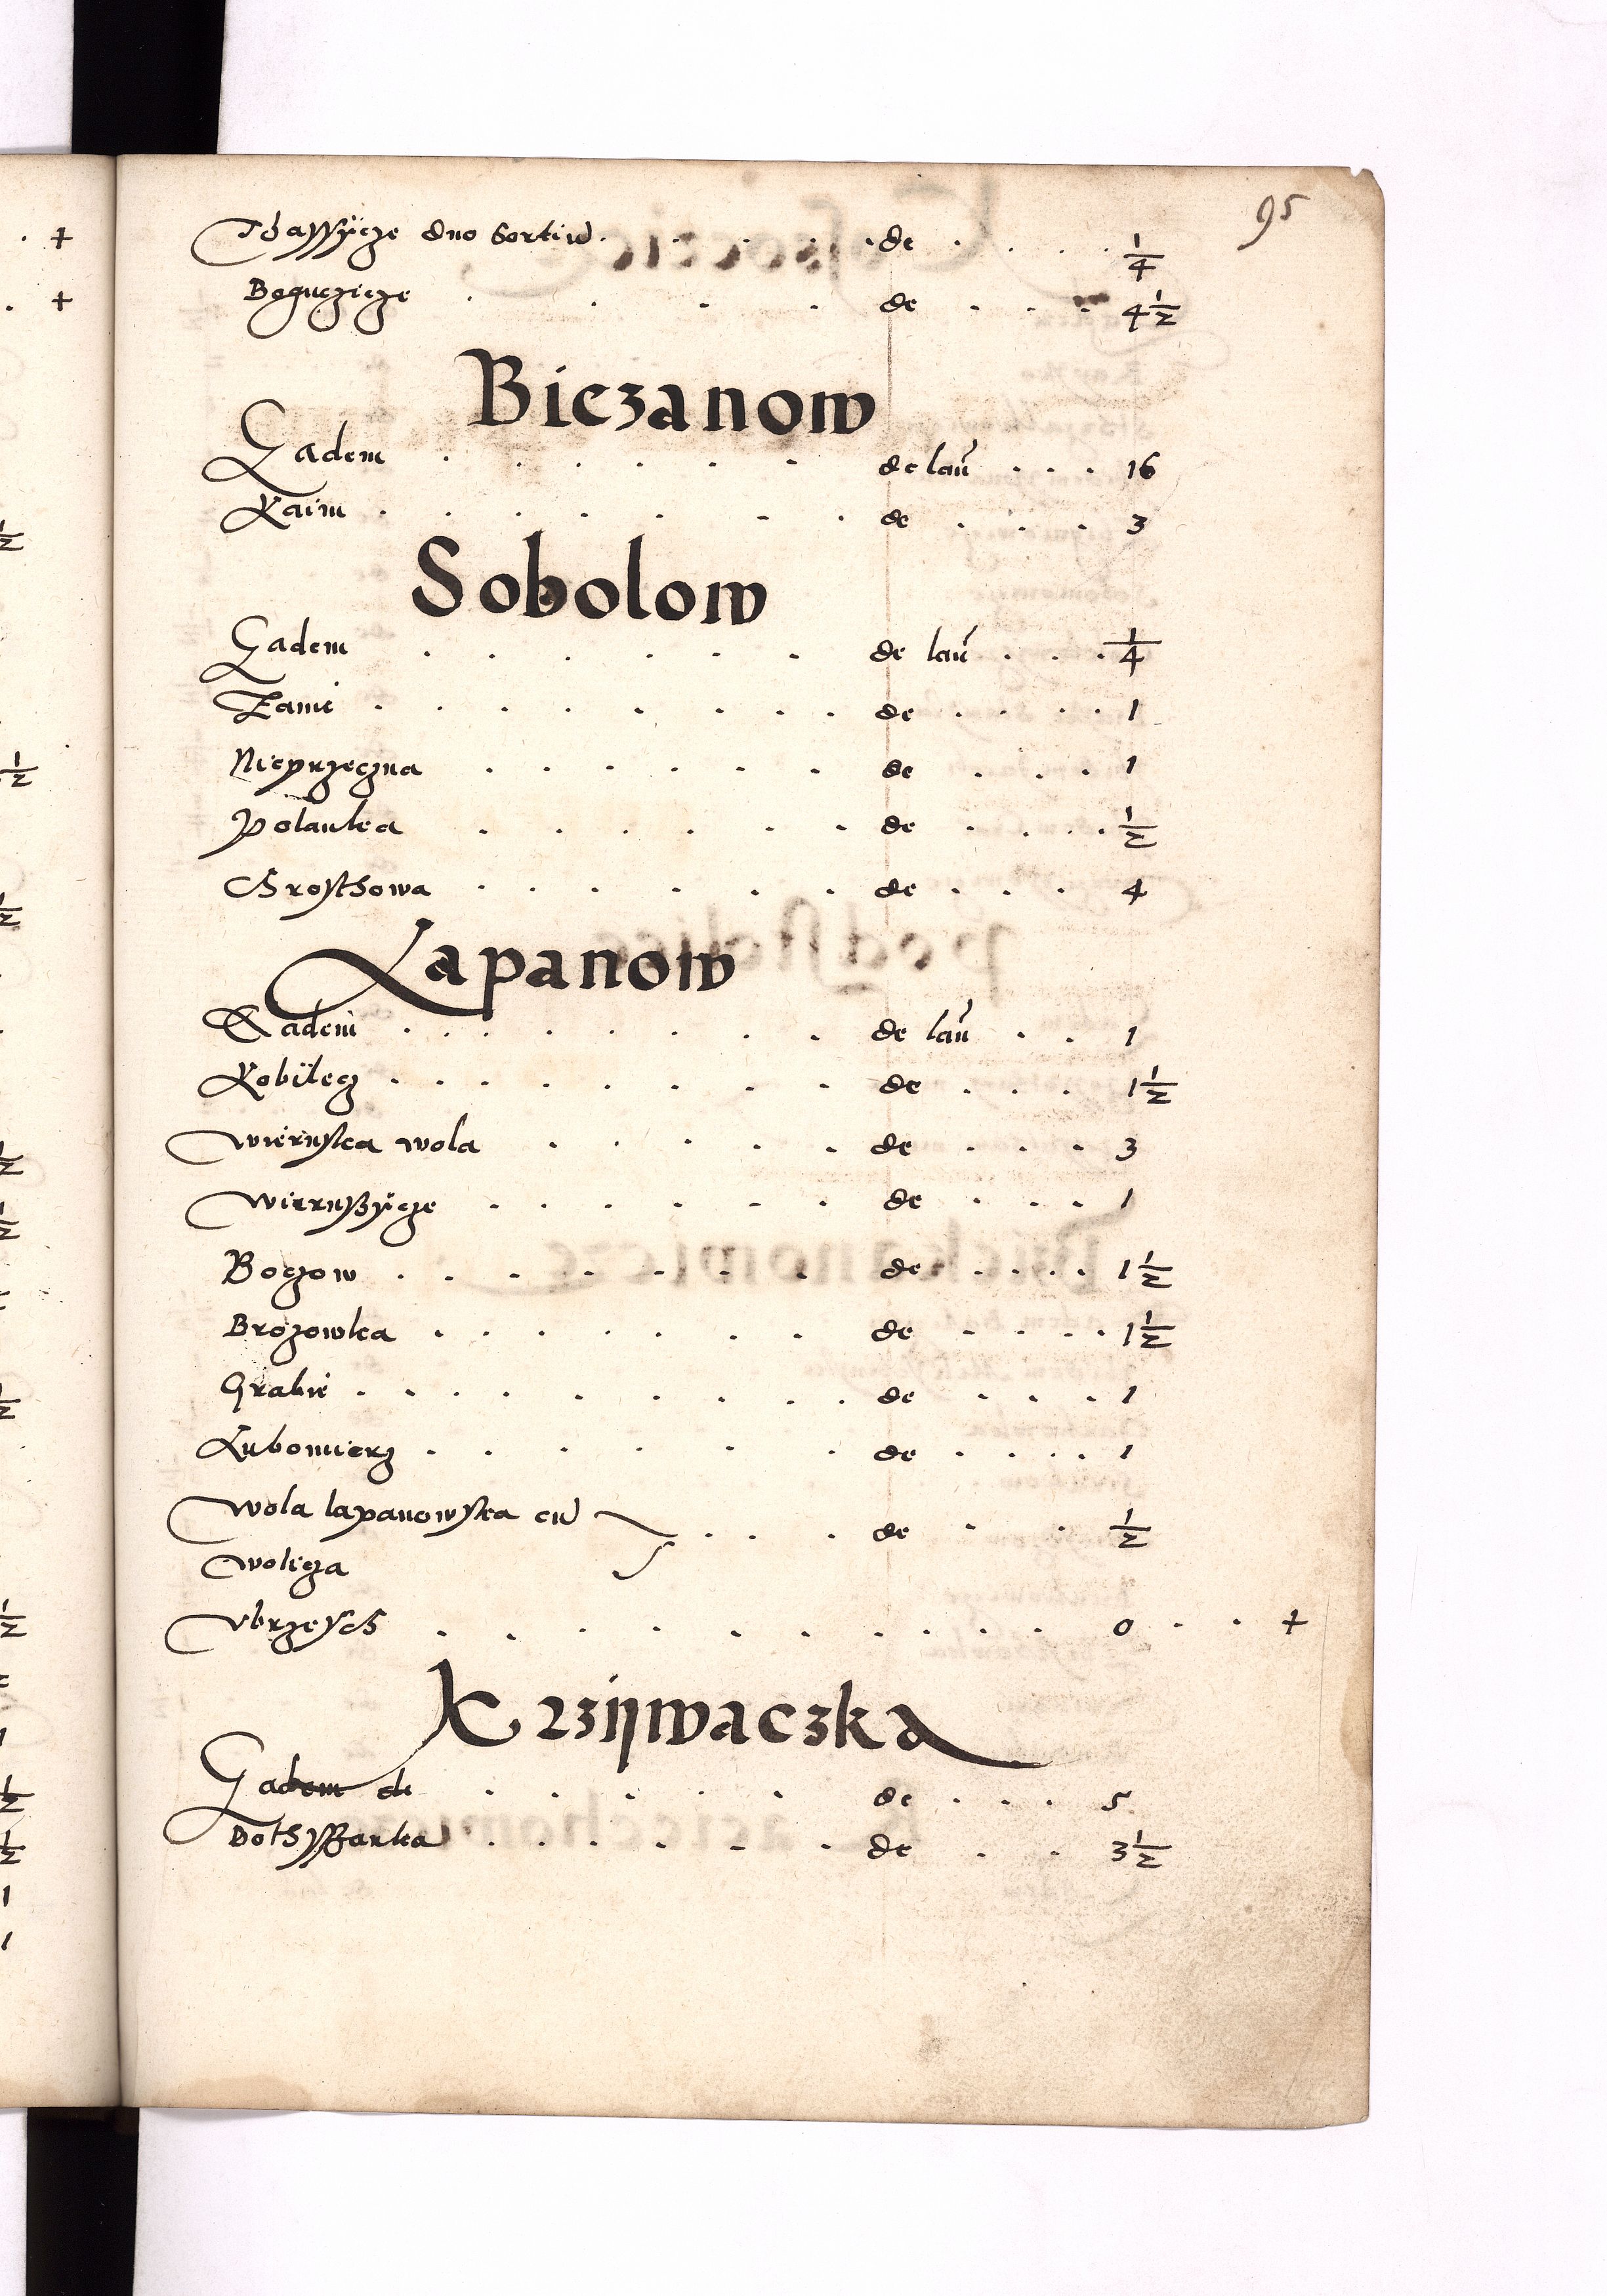 95
Thassÿcze duo sortiū . . . . de . . . . 1/4
Boguczicze . . . . de . . . 4 1/2
Biczanow
Eadem . . . . . . de lań . . . 16
Kaim . . . . . . . de . . . 3
Sobolow
Eadem . . . . . . de lań . . . 1/4
Zami . . . . . . . . de . . . . 1
Nieprzeczna . . . . . . de . . . 1
Polanka . . . . . de . . . . 1/2
Chrosthowa . . . . . . de . . . 4
Lapanow
Eadem . . . . . . . . de lań . . 1
Kobÿlecz . . . . . . . . de . . . 1 1/2
Wiernska wola . . . . . de . . . 3
Wiernszÿcze . . . . . . de . . . 1
Boczow . . . . . . . de . . . . 1 1/2
Brozowka . . . . . . . de . . . . 1 1/2
Grabie . . . . . . . . . de . . . . 1
Lubomierz . . . . . . de . . . . 1
Wola lapanowska cū . . . de . . 1/2
Wolicza
Vbrzesch . . . . . . . . . . 0 . . +
Krzijwaczka
Eadem de . . . . . de . . . 5
Bothsszarka . . . . . . de . . 3 1/2